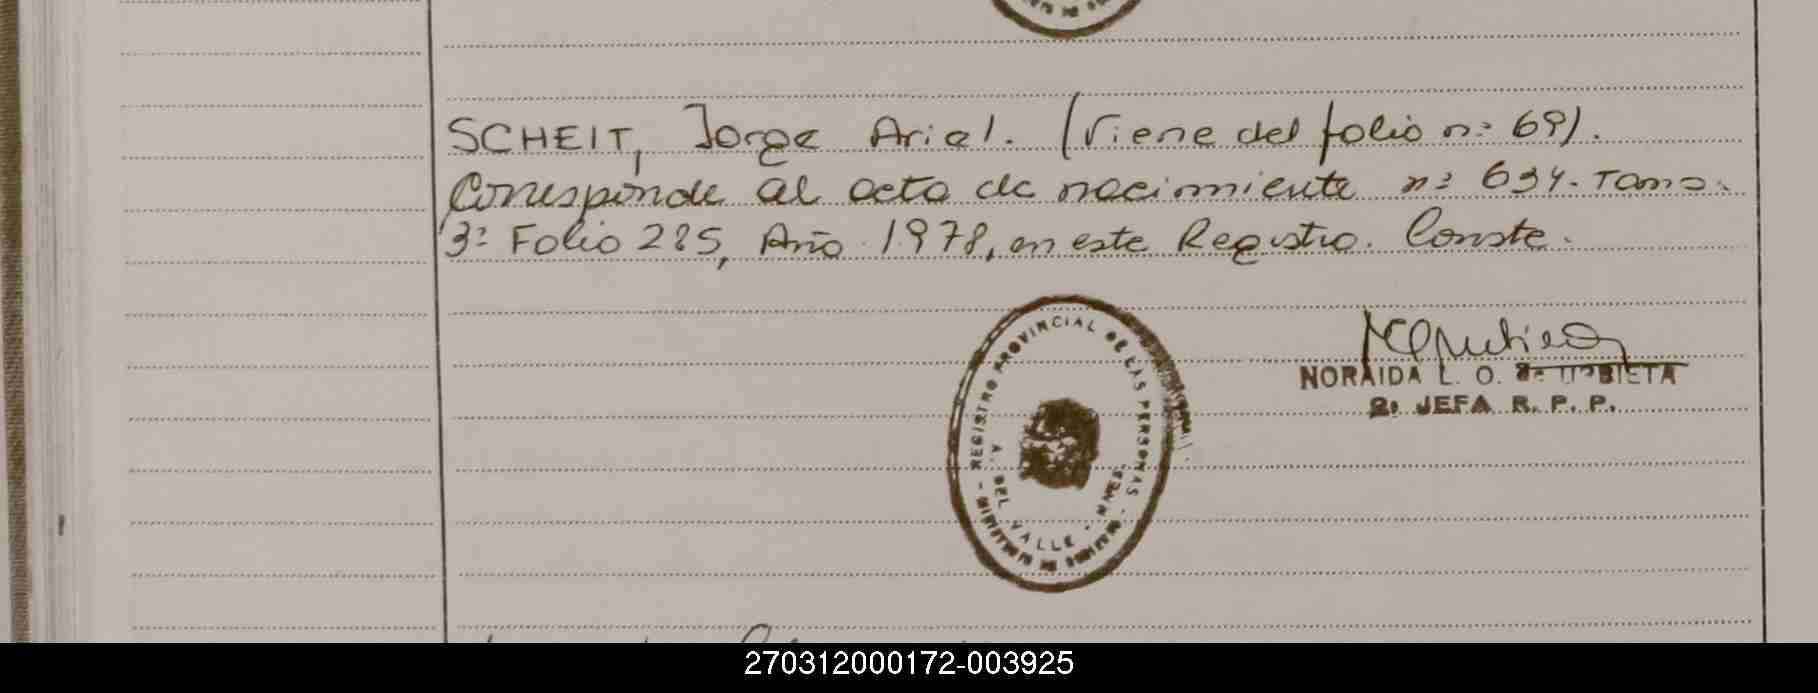 SCHEIT, Jorge Ariel. (Viene del folio n: 69).
Corresponde al acta de nacimiente n: 634. Tomo
3: Folio 285, Año 1978, en este Registro. Conste.
REGISTRO PROVINCIAL DE LAS PERSONAS
DEL VALLE
NORAIDA L. O. de URBIETA
2: JEFA R. P. P.
270312000172-003925